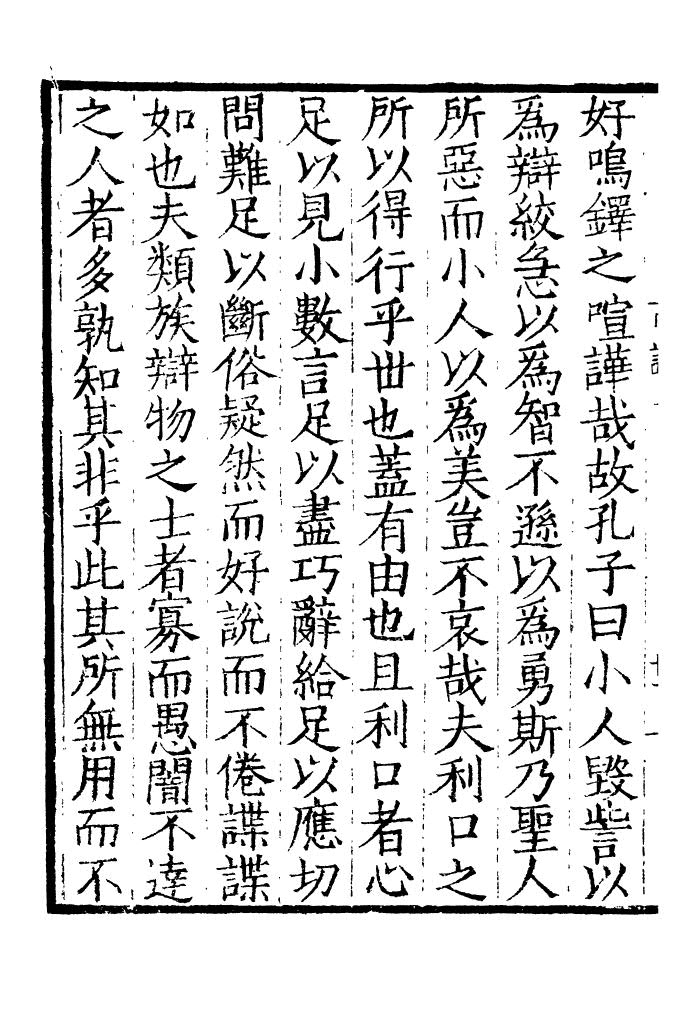 好鳴鐸之喧譁哉故孔子曰小人毀訾以
爲辯絞急以爲智不遜以爲勇斯乃聖人
所惡而小人以爲美豈不哀哉夫利口之
所以得行乎丗也蓋有由也且利口者心
足以見小數言足以盡巧辭給足以應切
問難足以斷俗疑然而好說而不倦諜諜
如也夫類族辯物之士者寡而愚闇不達
之人者多孰知其非乎此其所無用而不